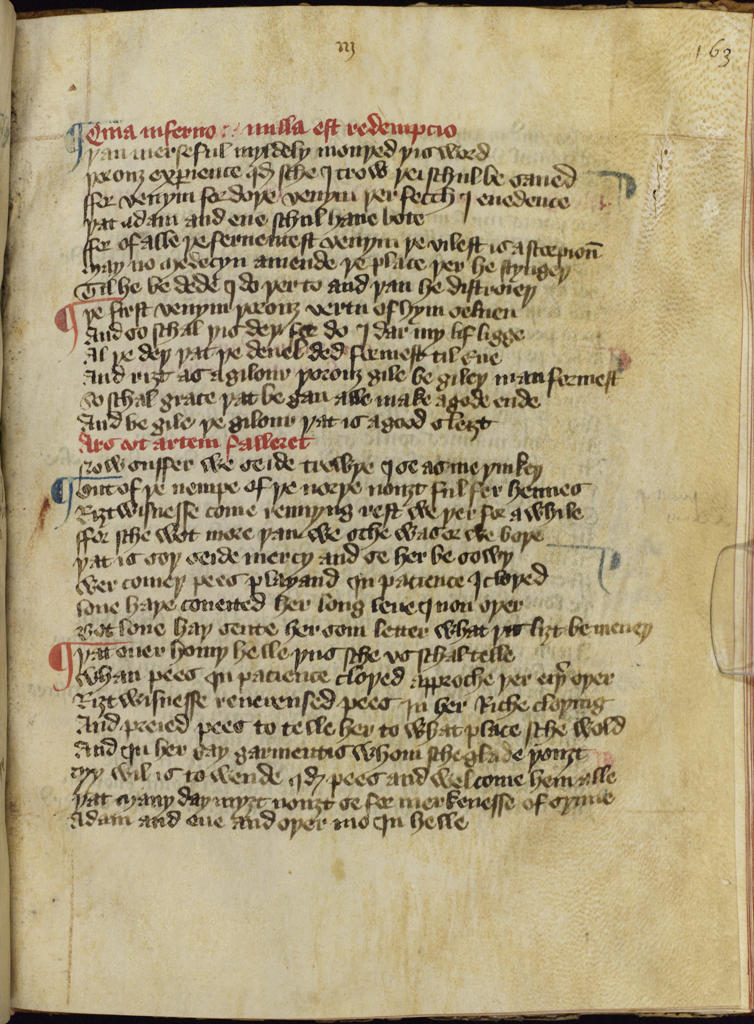 iij
163
Quia in inferno : nulla est redempcio
Þan merseful myldely mouyed þis word
Þorouȝ experience qđ sche I trow þei schul be saued
ffor venym for doþe venym þer fecch I euedence
Þat adam and eue schul haue bote
ffor of alle þe feruentest venym þe vilest is a scorpioun
May no medecyn amende þe place þer he styngeþ
Til he be dede I do þer to and þan he distroieþ
Þe first venym þorouȝ vertu of hym seluen
And so schal þis deþ for do I dar my lif ligge
Al þe deþ þat þe deuel ded formest til Eue
And riȝt as a gilour þorouȝ gile be gileþ man formest
So schal grace þat be gan alle make a gode ende
And be gile þe gilour þat is a good sleiȝt
Ars vt artem falleret
Now suffer we seide trewþe I se as me þinkeþ
Out of þe nempe of þe norþe nouȝt ful fer hennes
Riȝtwisnesse come rennyng rest we þer for a while
ffor sche wot more þan we sche was or we boþe
Þat is soþ seide mercy and se her be sowþ
Wer comeþ pees playand In patience I cloþed
Loue haþe coueited her long leue I non oþer
Bot loue haþ sente her som letter what þis liȝt be meneþ
Þat ouer houiþ helle þus sche vs schal telle
Whan pees In patience cloþed approche þer eiþer oþer
Riȝtwisnesse reuerensed pees In her Riche cloþing
And preied pees to telle her to what place sche wold
And In her gay garmentis whom sche glade þouȝt
My wil is to wende qđ pees and welcome hem alle
Þat many day myȝt nouȝt se for merkenesse of synne
Adam and eue and oþer mo In helle